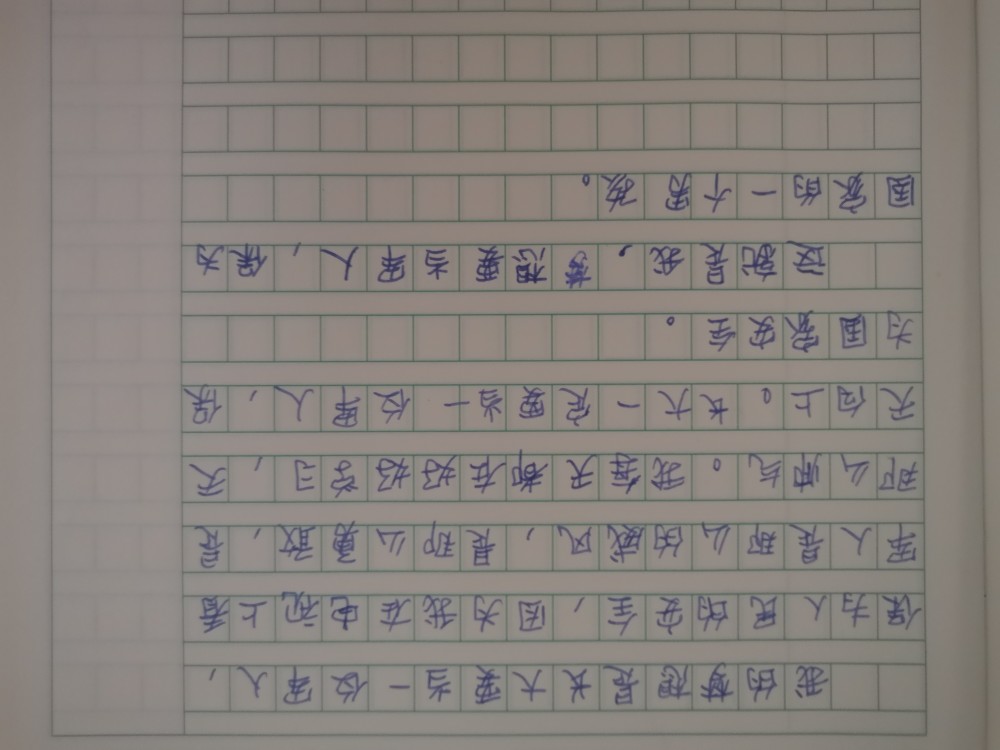 我的梦想是长大要当一位军人，
保为人民的安全，因为我在电视上看
军人是那么的威风，是那么勇敢，是
那么帅气。我每天都在好好学习，天
天向上。长大一定要当一位军人，保
为国家安全。
这就是我，梦想要当军人，保为
国家的一个男孩。